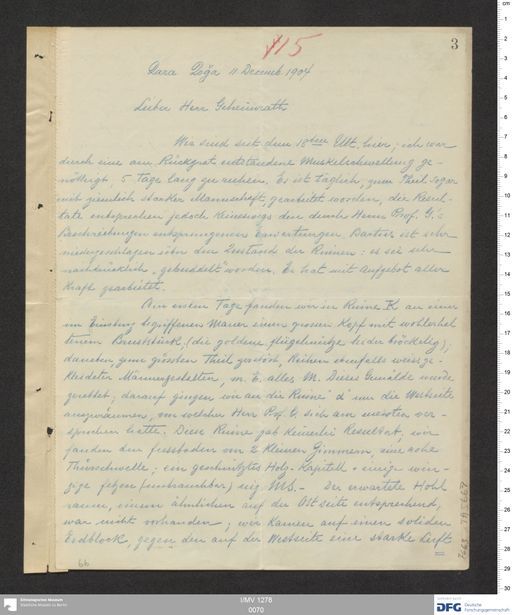 3
V15
Dara Doğa 11 Decemb. 1904
Lieber Herr Geheimrath
Wir sind seit dem 18ten Ult. hier; ich war
durch eine am Rückgrat entstandene Muskelschwellung ge-
nöthigt, 5 Tage lang zu ruhen. Es ist täglich, zum Theil sogar
mit ziemlich starker Mannschaft, gearbeitet worden, die Resul-
tate entsprechen jedoch keineswegs den durch Herrn Prof. G.'s
Beschreibungen entsprungenen Erwartungen. Bartus ist sehr
niedergeschlagen über den Zustand der Ruinen: es sei sehr
nachdrücklich „gebuddelt" worden. Er hat mit Aufgebot aller
Kraft gearbeitet.
Am ersten Tage fanden wir in Ruine K an einer
im Einsturz begriffenen Mauer einen grossen Kopf mit wohlerhal
tenem Bruststück, (die goldene Flügelmütze leider bröckelig);
daneben, zum grössten Theil zerstört, Reihen ebenfalls weissge-
kleideter Männergestalten, m. E. alles M. Dieses Gemälde wurde
gerettet; darauf gingen wir an die Ruine α um die Westseite
auszuräumen, von welcher Herr Prof. G. sich am meisten ver-
sprochen hatte. Diese Ruine gab keinerlei Resultat; wir
fanden den Fussboden von 2 kleinen Zimmern, eine rohe
Thürschwelle; ein geschnitztes Holz-Kapitell + einige win-
zige Fetzen (unbrauchbar) uig MS. - Der erwartete Hohl
raum, einem ähnlichen auf der Ostseite entsprechend,
war nicht vorhanden; wir kamen auf einen soliden
Erdblock, gegen den auf der Westseite eine starke Luft
66
I/MV 1278
0070
Ethnologisches Museum
Staatliche Museen zu Berlin
DFG Deutsche
Forschungsgemeinschaft
cm
0
1
2
3
4
5
6
7
8
9
10
11
12
13
14
15
16
17
18
19
20
21
22
23
24
25
26
27
28
29
30